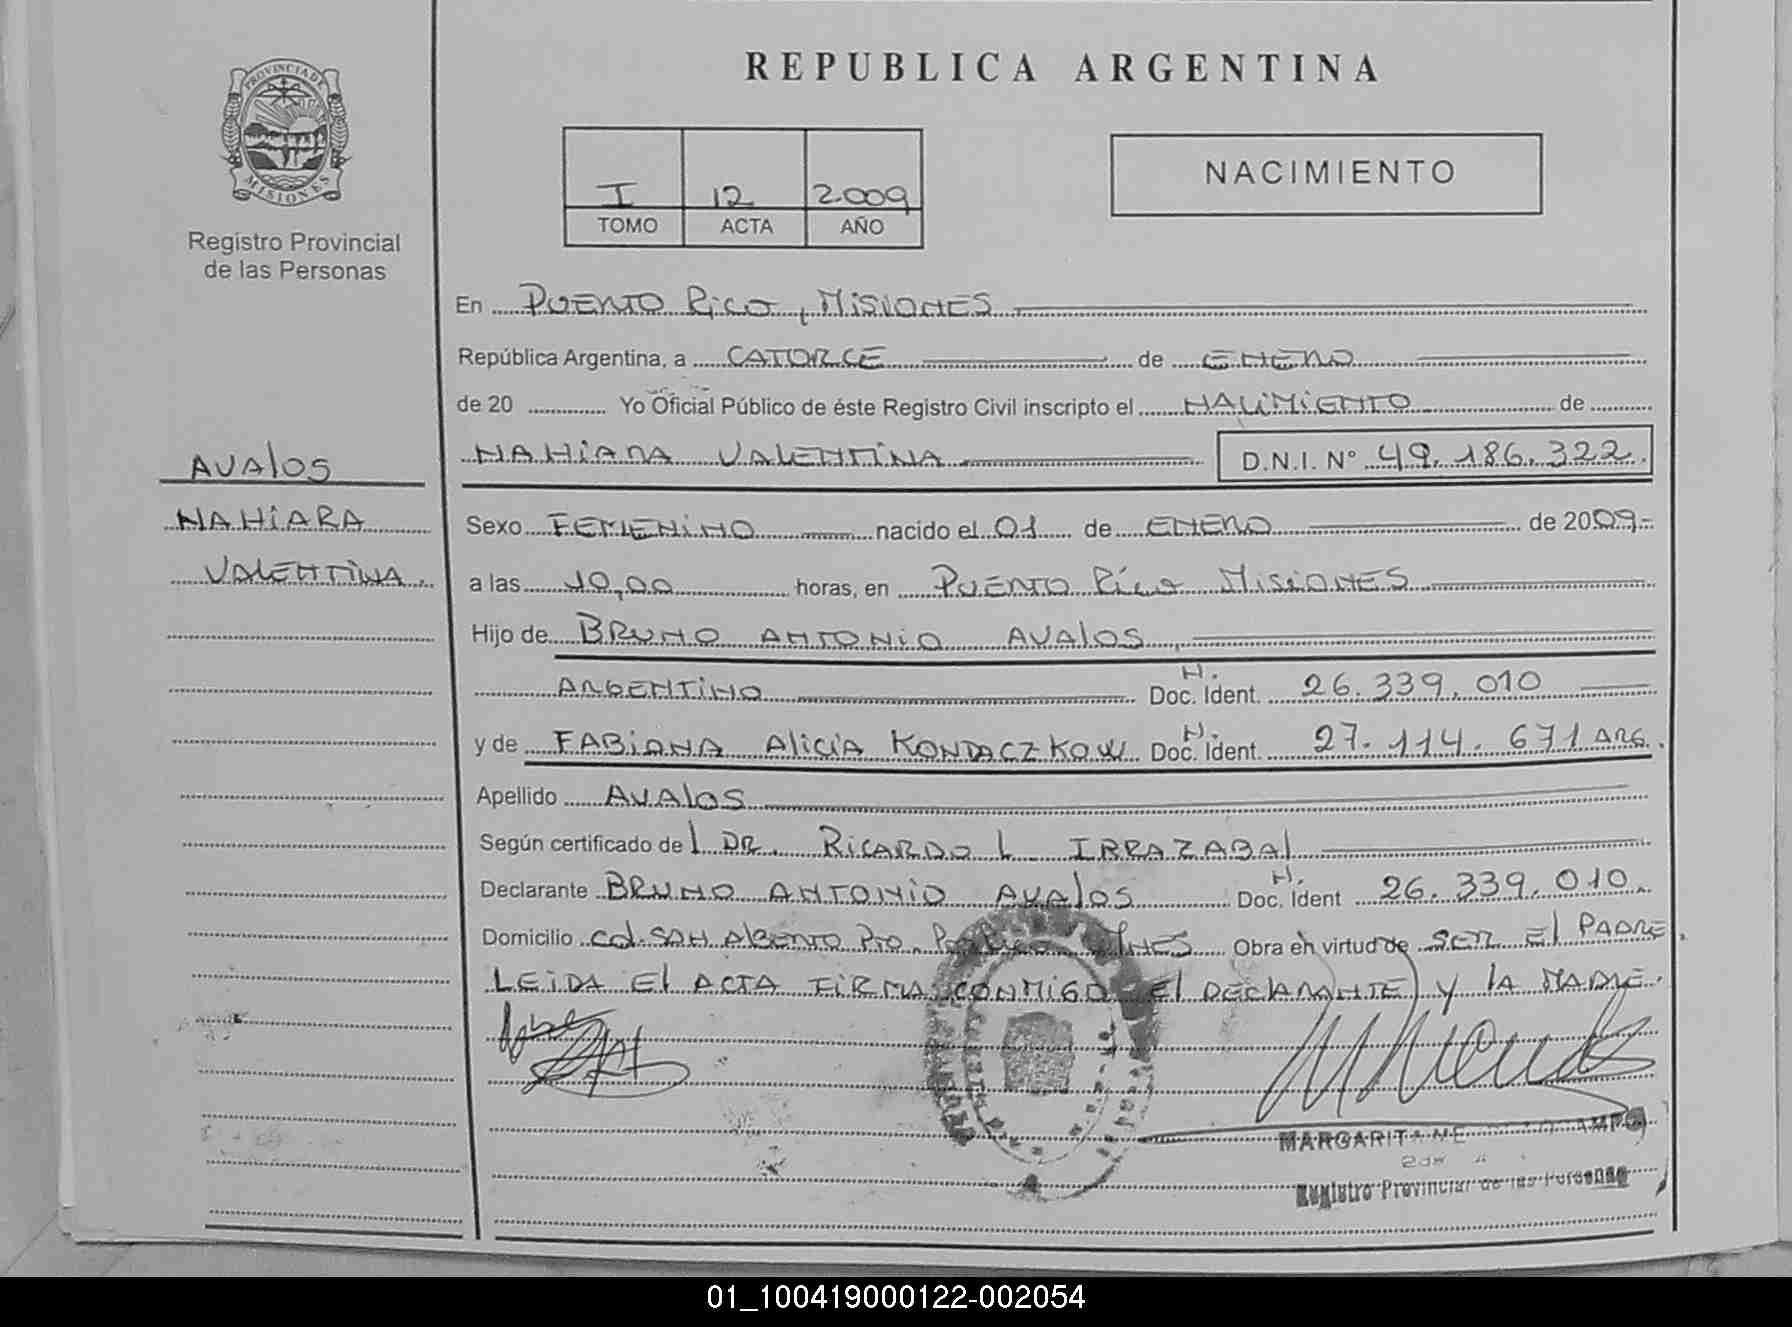 REPUBLICA ARGENTINA
PROVINCIA DE
MISIONES
Registro Provincial
de las Personas
I 12 2.009
TOMO ACTA AÑO
NACIMIENTO
En PUERTO RICO, MISIONES
República Argentina, a CATORCE de ENERO
de 20 Yo Oficial Público de éste Registro Civil inscripto el NACIMIENTO de
NAHIARA VALENTINA D.N.I. N° 49.186.322.
AVALOS
NAHIARA
VALENTINA.
Sexo FEMENINO nacido el 01 de ENERO de 2009-
a las 10,00 horas, en PUERTO RICO MISIONES
Hijo de BRUNO ANTONIO AVALOS
ARGENTINO N. Doc. Ident. 26.339.010
y de FABIANA ALICIA KONDACZKOW N. Doc. Ident. 27.114.671 ARG.
Apellido AVALOS
Según certificado del DR. RICARDO L IRRAZABAL
Declarante BRUNO ANTONIO AVALOS N. Doc. Ident 26.339.010.
Domicilio COL. SAN ALBERTO PTO. MNES Obra en virtud de SER EL PADRE.
LEIDA EL ACTA FIRMA CONMIGO EL DECLARANTE Y LA MADRE.
MARGARITA
Registro Provincial de las Personas
01_100419000122-002054